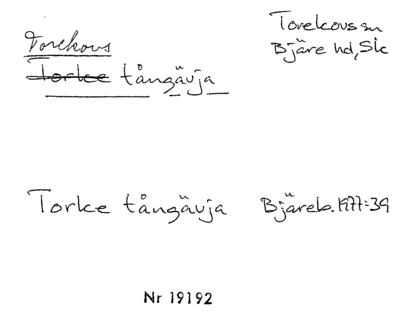 Torekovs sn
Bjäre hd, Sk
Torekovs
Torke tångävja
Torke tångävja Bjäreb. 1977:39
Nr 19192